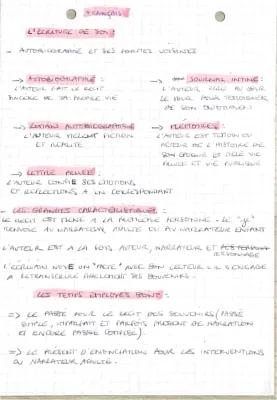 FRANÇAIS
L'ÉCRITURE DE SOI :
- AUTOBIOGRAPHIE ET SES FORMES VOISINES
→ AUTOBIOGRAPHIE :
L'AUTEUR FAIT LE RECIT
SINCERE DE SA PROPRE VIE
→ JOURNAL INTIME :
L'AUTEUR ECRIT AU JOUR
LE JOUR POUR TEMOIGNER
DE SON QUOTIDIEN
→ FICTION AUTOBIOGRAPHIQUE
L'AUTEUR MELENT FICTION
ET REALITE
→ MEMOIRES :
L'AUTEUR EST TEMOIN OU
ACTEUR DE L'HISTOIRE DE
SON EPOQUE ET MELE VIE
PRIVEE ET VIE PUBLIQUE
→ LETTRE PRIVEE :
L'AUTEUR CONFIE SES EMOTIONS
ET REFLEXIONS A UN CORRESPONDANT
- LES GRANDES CARACTERISTIQUES :
LE RECIT EST MENE A LA PREMIERE PERSONNE. LE "JE"
RENVOIE AU NARRATEUR ADULTE OU AU NARRATEUR ENFANT
L'AUTEUR EST A LA FOIS AUTEUR, NARRATEUR ET
PERSONNAGE
L'ECRIVAIN NOUE UN "PACTE" AVEC SON LECTEUR : IL S'ENGAGE
A RETRANSCRIRE SES SOUVENIRS.
LES TEMPS EMPLOYES SONT :
=> LE PASSE POUR LE RECIT DES SOUVENIRS (PASSE
SIMPLE, IMPARFAIT ET PARFOIS PRESENT DE NARRATION
ET ENCORE PASSE COMPOSE).
=> LE PRESENT D'ENONCIATION POUR LES INTERVENTIONS
DU NARRATEUR ADULTE.